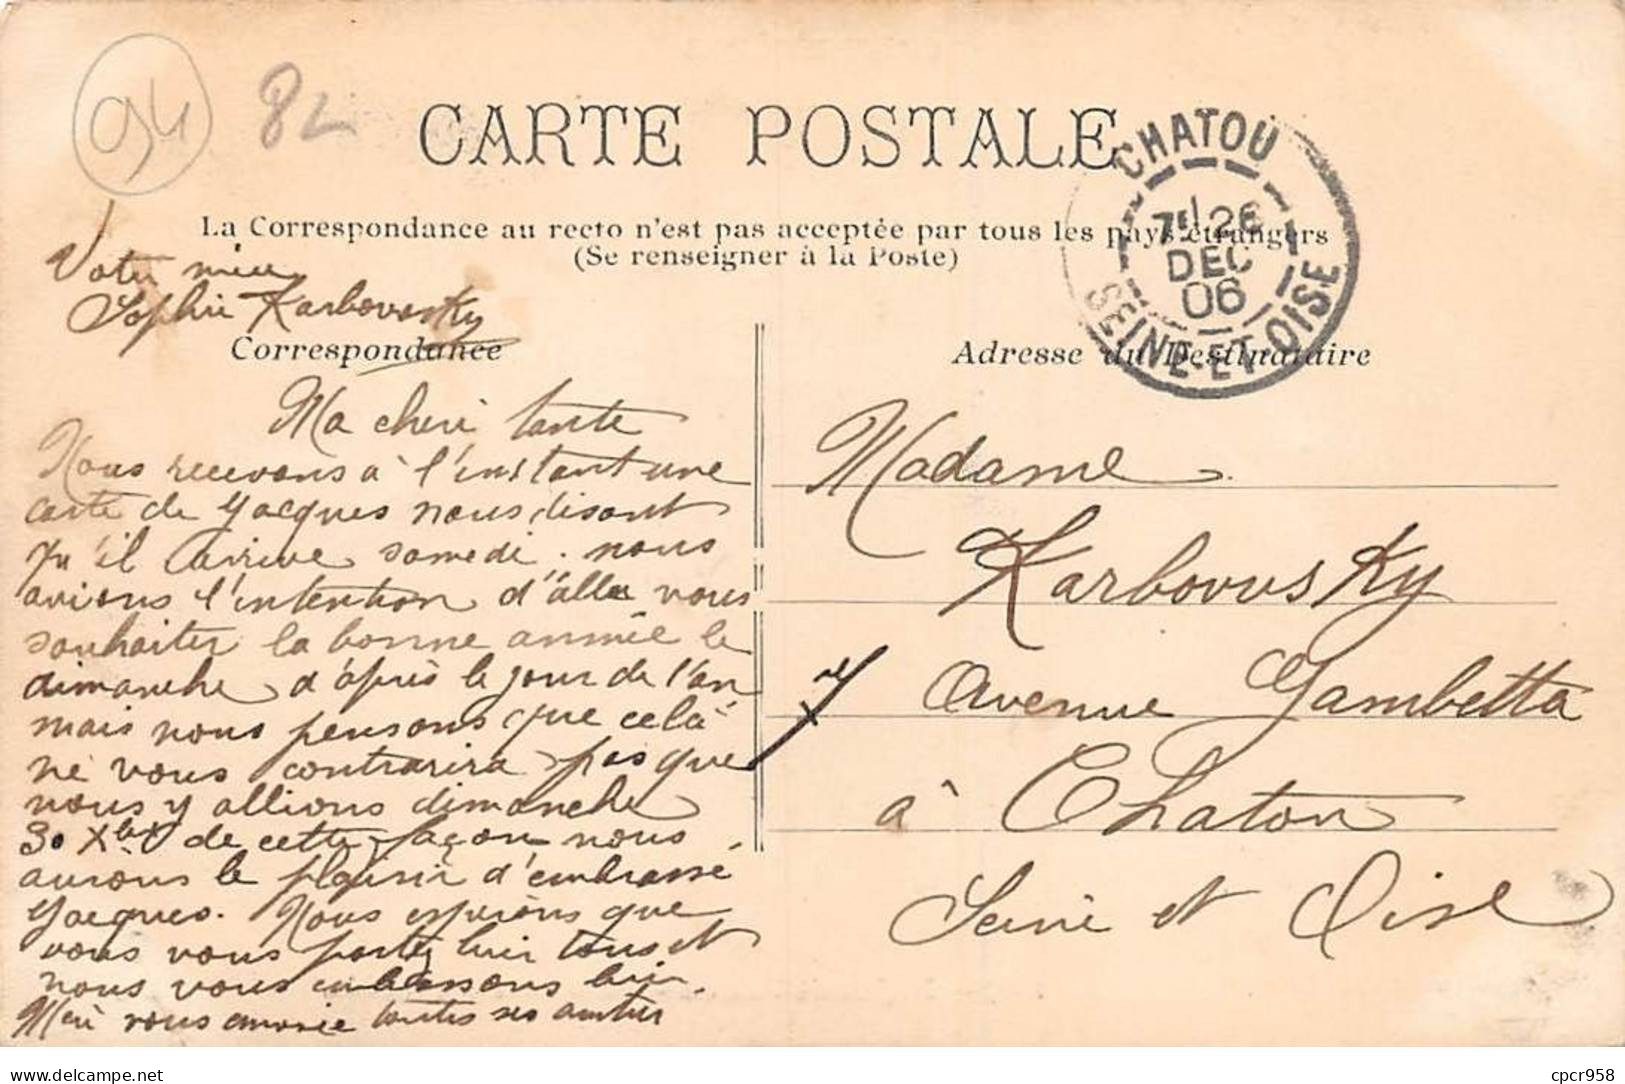 94
82
CARTE POSTALE
CHATOU
7E 26
DEC
06
SEINE-ET-OISE
La Correspondance au recto n'est pas acceptée par tous les pays étrangers
(Se renseigner à la Poste)
Votre nièce
Sophie Karbovosky
Correspondance
Ma cheri tante
Nous recevons à l'instant une
carte de Jacques nous disant
qu'il arrive samedi. nous
avions l'intention d'aller vous
souhaiter la bonne année le
dimanche d'après le jour de l'an
mais nous pensons que celà
ne vous contrarira pas que
nous y allions dimanche
30 Xbre de cette façon nous
aurons le plaisir d'embrassé
Jacques. Nous espérons que
vous vous portez bien tous et
nous vous embrassons bien.
Meré vous envoie toutes ses amitiés
Adresse du Destinataire
Madame
Karbovusky
Avenue Gambetta
à Chatou
Seine et Oise
cpcr958